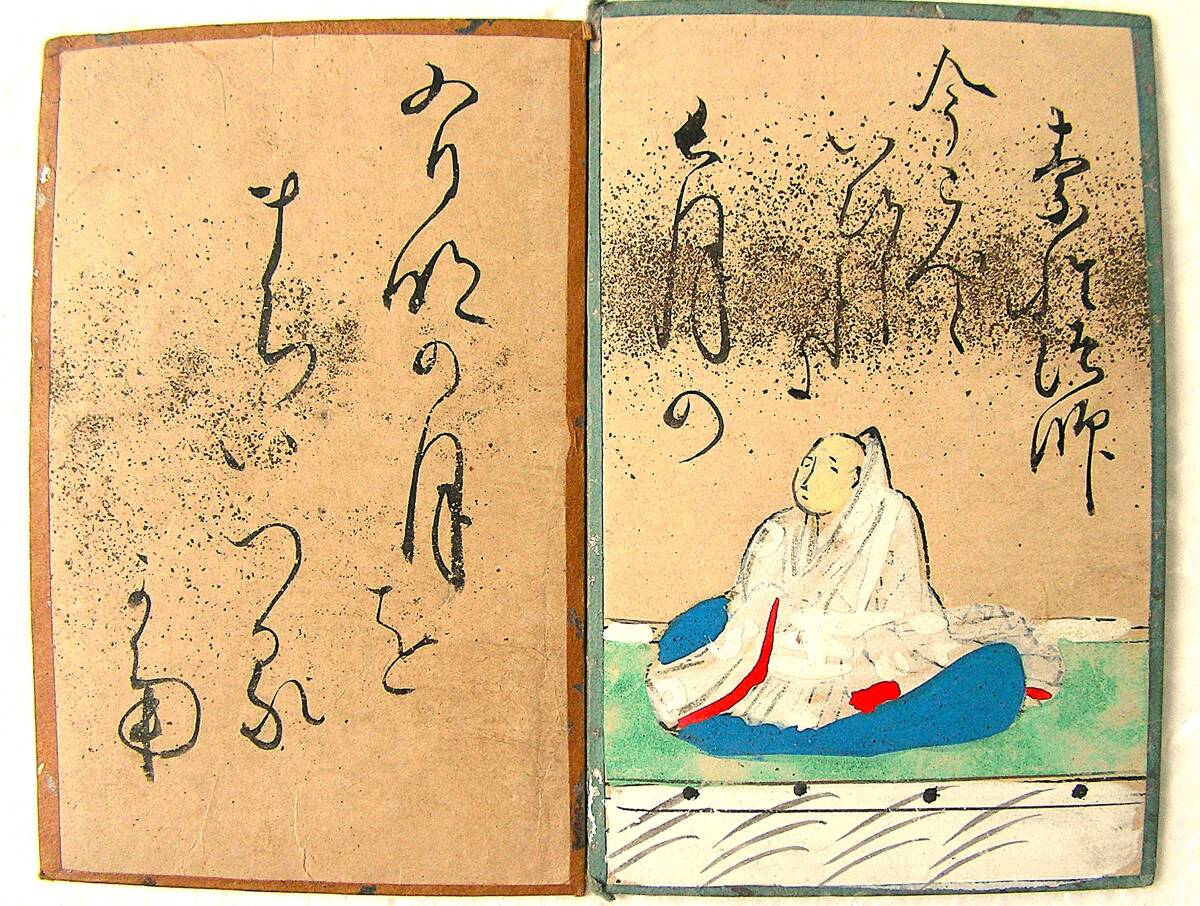 素性法師
今こんと
いひし
斗に
長月の
有明の月を
まちいつる
かな